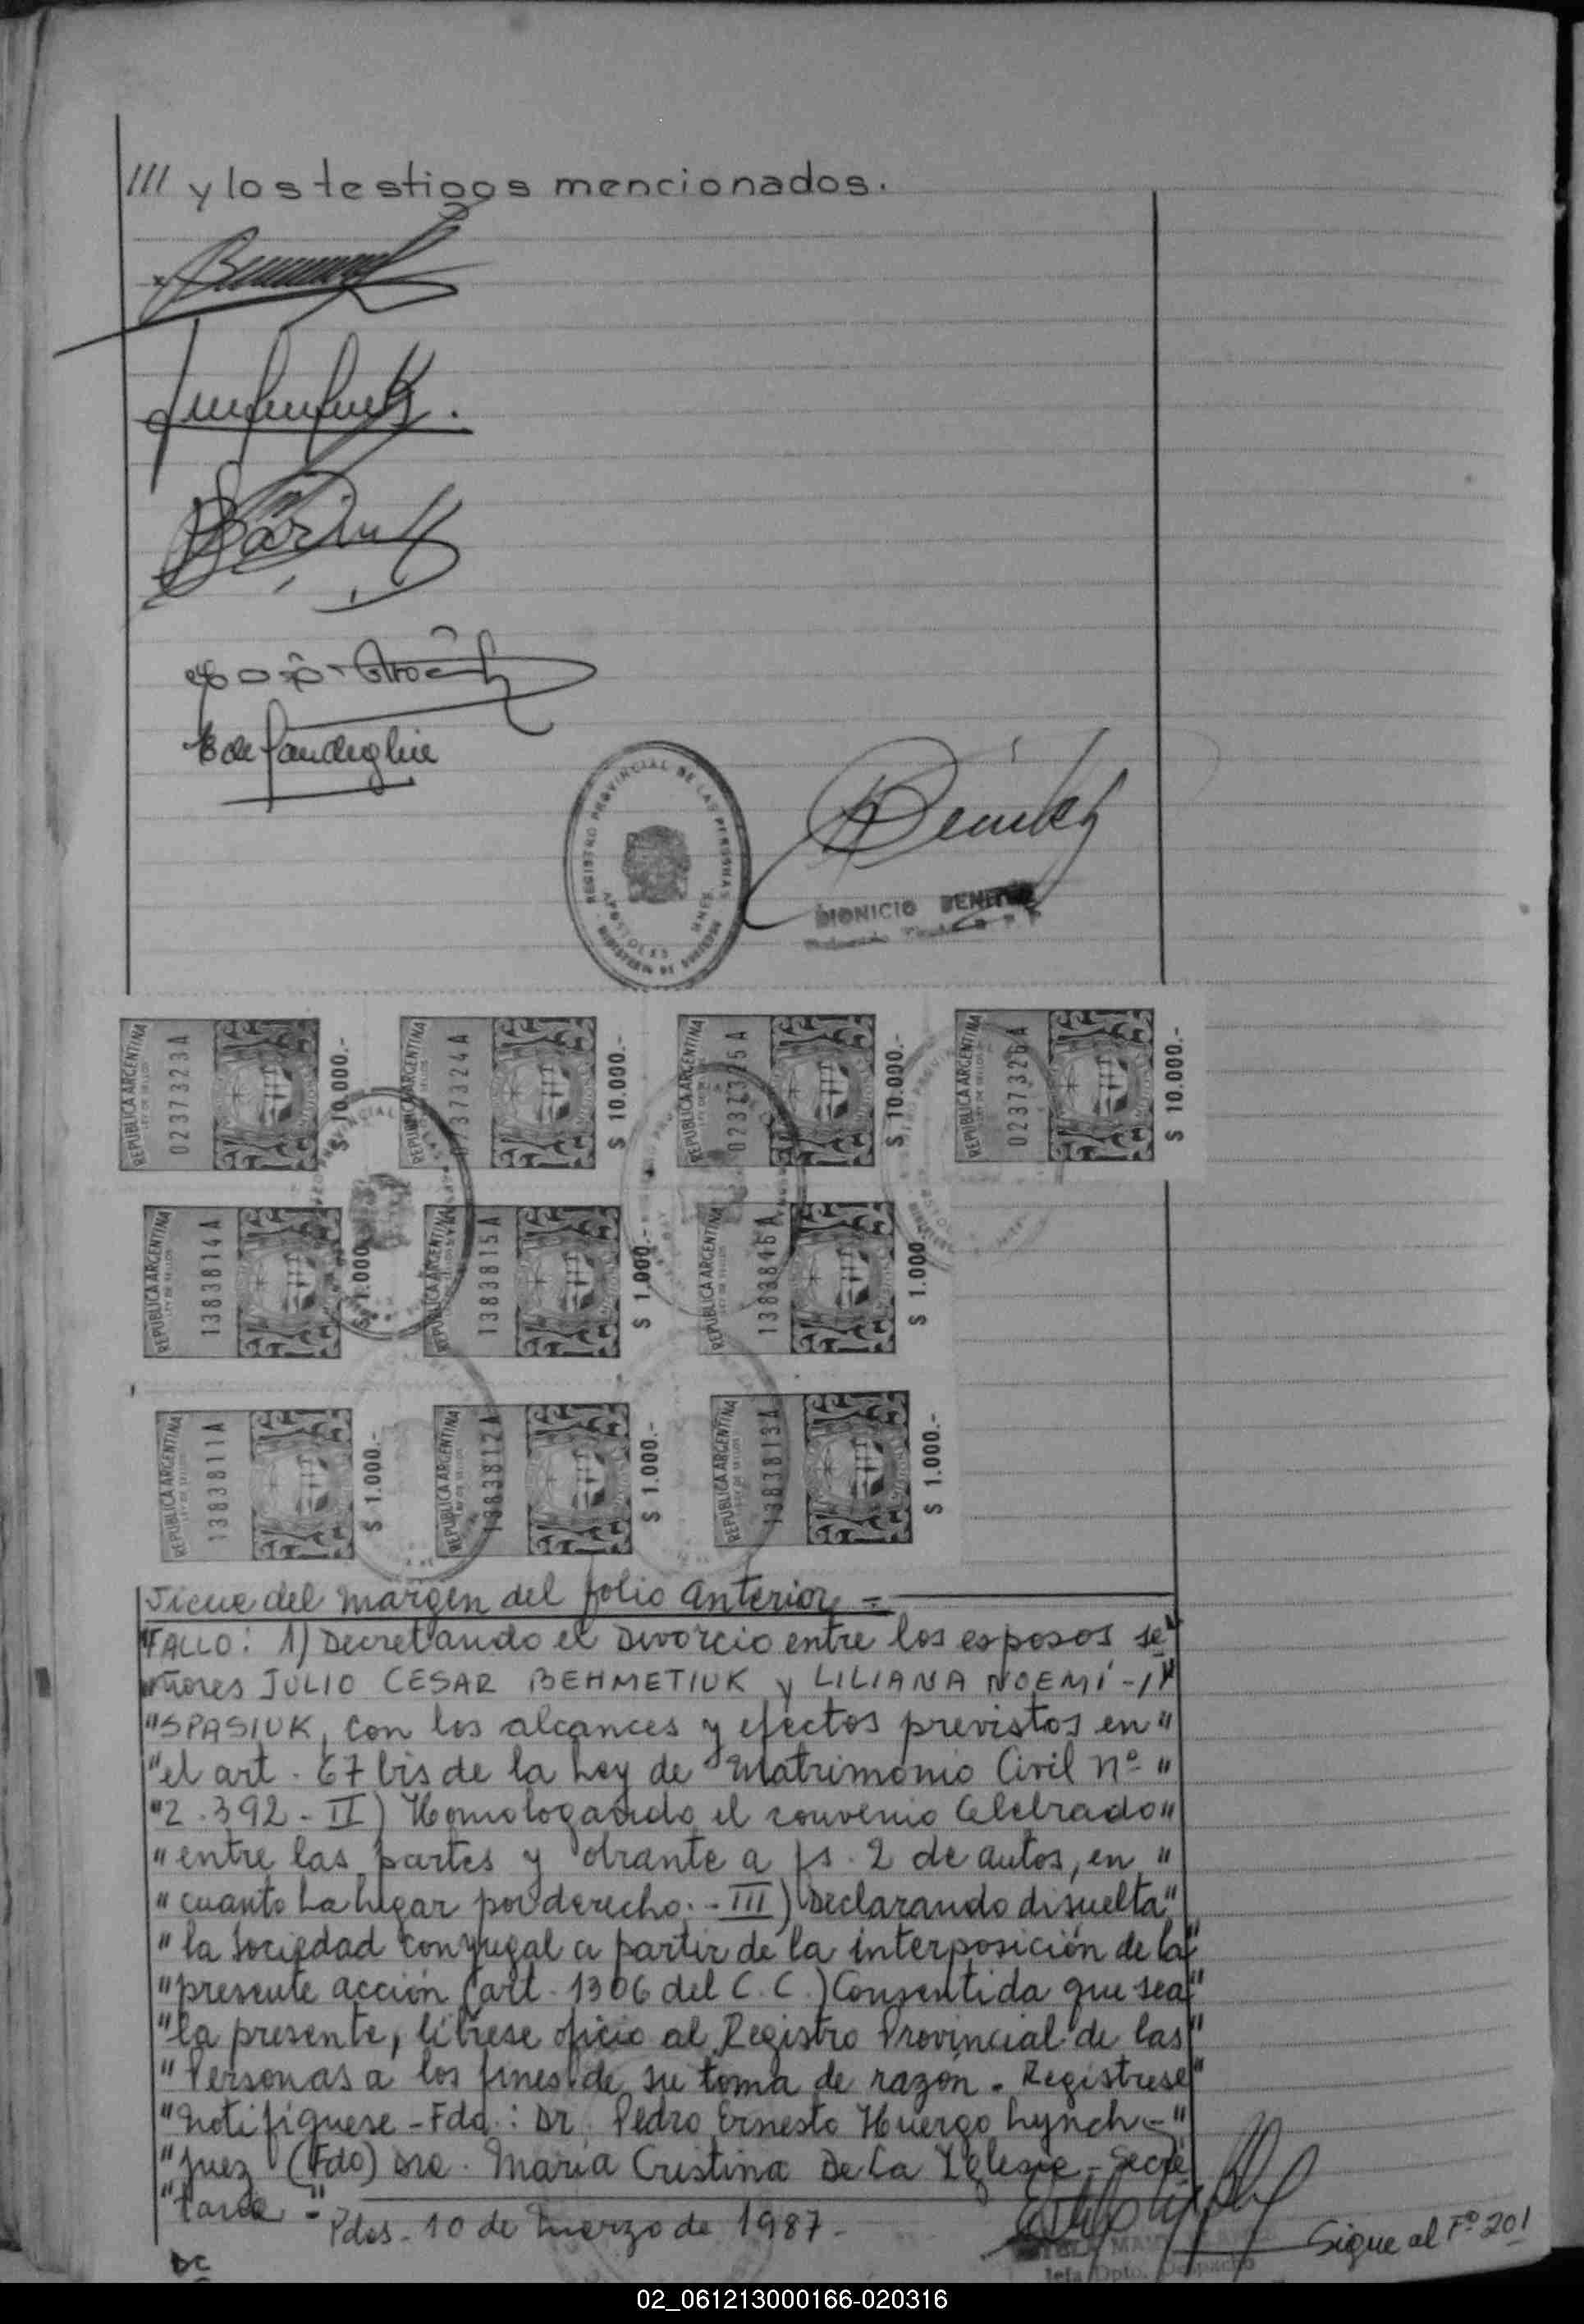 /// y los testigos mencionados.
REGISTRO PROVINCIAL DE LAS PERSONAS
APOSTOLES MNES.
MINISTERIO DE GOBIERNO
DIONICIO BENITEZ
REPUBLICA ARGENTINA
LEY DE SELLOS
0237323A
$ 10.000.-
REPUBLICA ARGENTINA
LEY DE SELLOS
0237324A
$ 10.000.-
REPUBLICA ARGENTINA
LEY DE SELLOS
0237325A
$ 10.000.-
REPUBLICA ARGENTINA
LEY DE SELLOS
0237326A
$ 10.000.-
REPUBLICA ARGENTINA
LEY DE SELLOS
1383814A
$ 1.000.-
REPUBLICA ARGENTINA
1383815A
$ 1.000.-
REPUBLICA ARGENTINA
1383816A
$ 1.000.-
REPUBLICA ARGENTINA
LEY DE SELLOS
1383811A
$ 1.000.-
REPUBLICA ARGENTINA
LEY DE SELLOS
1383812A
$ 1.000.-
REPUBLICA ARGENTINA
LEY DE SELLOS
1383813A
$ 1.000.-
Sigue del margen del folio anterior =
"FALLO: 1) Decretando el Divorcio entre los esposos se"
"ñores JULIO CESAR BEHMETIUK y LILIANA NOEMÍ -/"
"SPASIUK, con los alcances y efectos previstos en "
"el art. 67 bis de la Ley de Matrimonio Civil nº "
"2.392 - II) Homologando el convenio celebrado"
"entre las partes y obrante a fs. 2 de autos, en "
"cuanto ha lugar por derecho. - III) Declarando disuelta"
"la Sociedad conyugal a partir de la interposición de la"
"presente acción (art. 1306 del C. C.) Consentida que sea"
"la presente, líbrese oficio al Registro Provincial de las"
"Personas a los fines de su toma de razón. Regístrese"
"notifíquese - Fdo.: Dr. Pedro Ernesto Huergo Lynch -"
"Juez (Fdo) Dra. María Cristina De La Iglesia - Secre
"taria - "
Pdas - 10 de marzo de 1987 -
Jefa Dpto. Despacho
Sigue al Fº 201
02_061213000166-020316